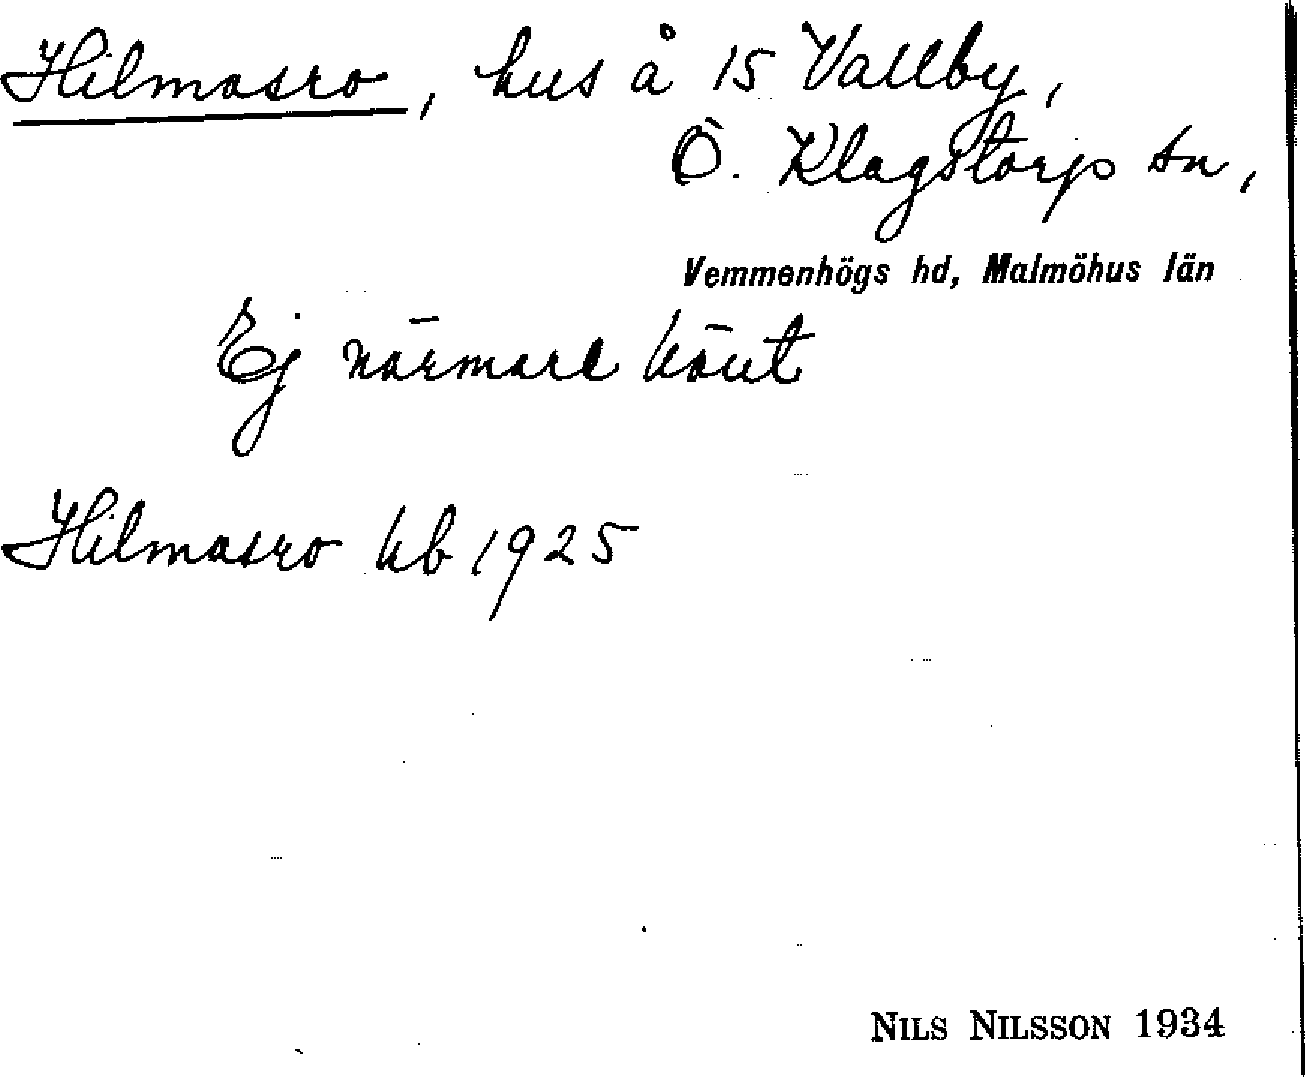 Hilmasro, hus å 15 Vallby,
Ö. Klagstorp sn,
Vemmenhögs hd, Malmöhus län
Ej närmare känt
Hilmasro kb 1925
NILS NILSSON 1934